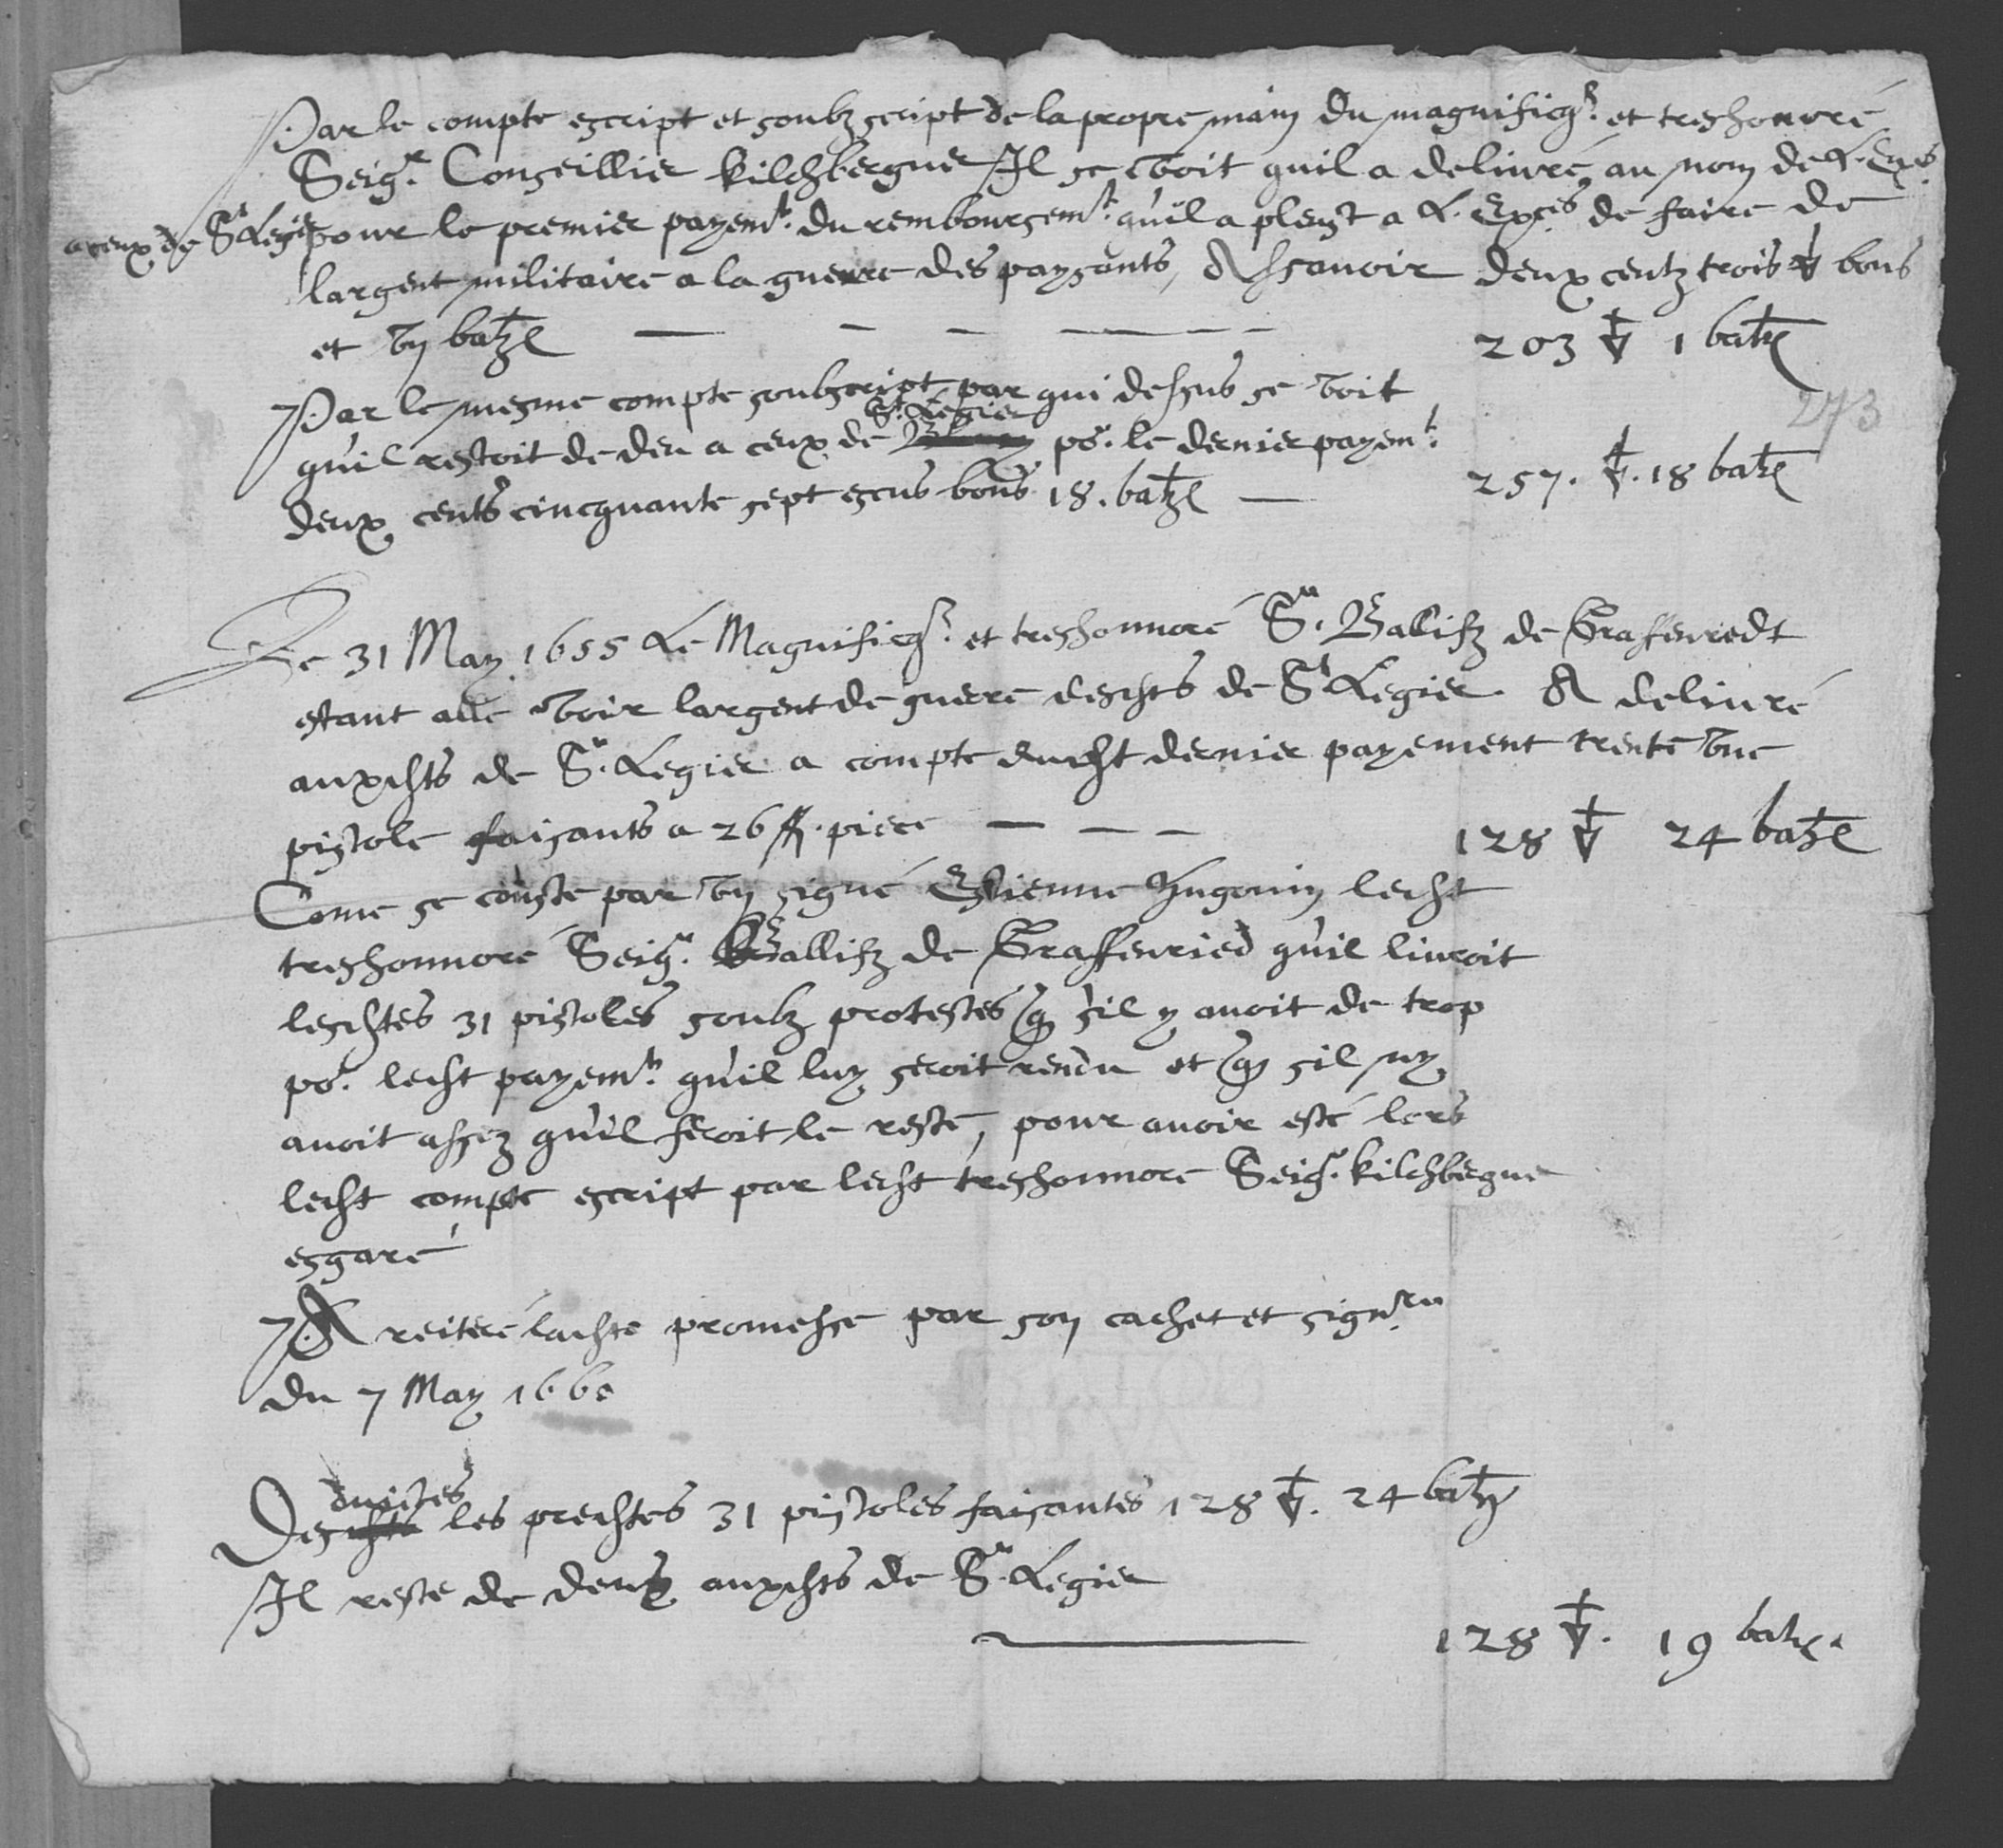 Par le compte escript et soubzscript de la propre main du magnificq.^e et treshonoré
Seig.^r Conseillier Kilchberguer Il se voit quil a delivré, au nom de L. Ex.^ces
a ceux de S^t Legier pour le premier payem.^t du remboursem.^t quil a pleust a L. Ex.^ces de faire de
largent militaire a la guerre des paysants, Assavoir deux centz trois ∇ bons
et un batz — — — — — — 203 ∇ 1 batz
Par le mesme compte soubscript par qui dessus se voit
273
quil restoit de deu a ceux de S^t Legier po.^r le dernier payem.^t
deux cents cincquante sept escus bons 18. batz — 257. ∇. 18 batz
Le 31 May 1655 Le Magnificq.^e et treshonnoré S.^r Ballifz de Grafenredt
estant allé voir largent de guerre desdts de S^t Legier. A delivré
auxdts de S.^t Legier a compte dudt dernier payement trente une
pistole faisants a 26 ff. piece — — — 128 ∇ 24 batz
Come se conste par un signé Estienne Hugonin ledt
treshonnoré Seig.^r Ballifz de Graffenried quil livroit
lesdtes 31 pistoles soubz protestes q sil y avoit de trop
po.^r ledt payem.^t quil luy seroit rendu et q sil ny
avoit assez quil feroit le reste, pour avoir esté lors
ledt compte escript par ledt treshonnore Seig.^r Kilchbergue
esgaré
A reiteré ladte promesse par son cachet et sign.^re
du 7 May 1660
Deduistes les predtes 31 pistoles faisantes 128 ∇. 24 batz
Il reste de deub auxdts de S.^t Legier
— 128 ∇. 19 batz.